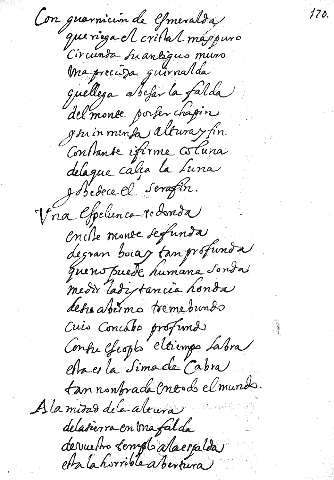 170.
Con guarnicion de esmeralda
que riega el cristal mas puro
Circunda su antiguo muro
Una preciosa guirnalda
que llega a besar la falda
del monte por ser chapin
y su inmensa altura y fin
constante i firme coluna
de la que calça la Luna
y obedece el serafin.
Vna espelunca redonda
en este monte se funda
de gran boca y tan profunda
que no puede humana sonda
medir la distancia honda
deste abismo tremebundo
cuio concabo profundo
Con su escoplo el tiempo labra
esta es la sima de Cabra
tan nonbrada en todo el mundo.
A la mitad de la altura
de la sierra en una falda
de vuestro templo a la espalda
esta la horrible abertura